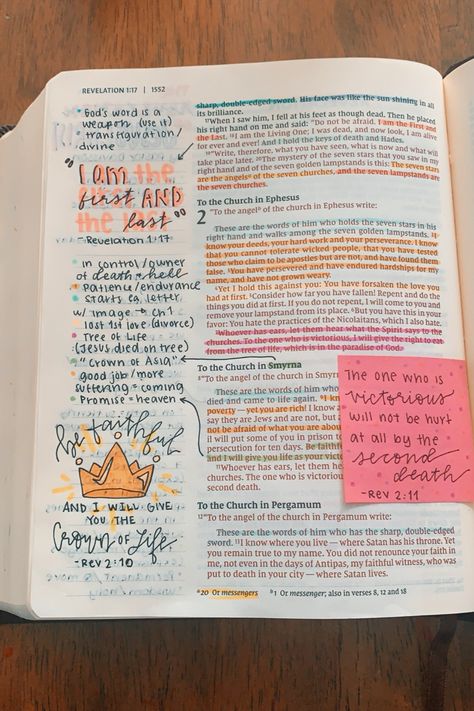 REVELATION 1:17 | 1552
• God's word is a
weapon (use it)
• transfiguration/
divine
"I am the
first AND
last"
- Revelation 1:17
• in control/owner
of death + hell
• Patience/endurance
• starts eq. letter
w/ image → Ch 1
• lost 1st love (divorce)
• Tree of Life
(Jesus died on tree)
• "Crown of Asia"
• good job/more
suffering = coming
• Promise = heaven
be faithful
AND I WILL GIVE
YOU THE
Crown of Life
- REV 2:10
sharp, double-edged sword. His face was like the sun shining in all
its brilliance.
17When I saw him, I fell at his feet as though dead. Then he placed
his right hand on me and said: "Do not be afraid. I am the First and
the Last. 18I am the Living One; I was dead, and now look, I am alive
for ever and ever! And I hold the keys of death and Hades.
19"Write, therefore, what you have seen, what is now and what will
take place later. 20The mystery of the seven stars that you saw in my
right hand and of the seven golden lampstands is this: The seven stars
are the angels of the seven churches, and the seven lampstands are
the seven churches.
To the Church in Ephesus
2 "To the angel of the church in Ephesus write:
These are the words of him who holds the seven stars in his
right hand and walks among the seven golden lampstands. 2I
know your deeds, your hard work and your perseverance. I know
that you cannot tolerate wicked people, that you have tested
those who claim to be apostles but are not, and have found them
false. 3You have persevered and have endured hardships for my
name, and have not grown weary.
4Yet I hold this against you: You have forsaken the love you
had at first. 5Consider how far you have fallen! Repent and do the
things you did at first. If you do not repent, I will come to you and
remove your lampstand from its place. 6But you have this in your
favour: You hate the practices of the Nicolaitans, which I also hate.
7Whoever has ears, let them hear what the Spirit says to the
churches. To the one who is victorious, I will give the right to eat
from the tree of life, which is in the paradise of God.
To the Church in Smyrna
8"To the angel of the church in Smyrna
These are the words of him who
died and came to life again. 9I kn
poverty – yet you are rich! I know a
say they are Jews and are not, but
not be afraid of what you are abou
il will put some of you in prison t
persecution for ten days. Be faith
and I will give you life as your vict
11Whoever has ears, let them he
churches. The one who is victorio
second death.
The one who is
victorious
will not be hurt
at all by the
second
death
- REV 2:11
To the Church in Pergamum
12"To the angel of the church in Pergamum write:
These are the words of him who has the sharp, double-edged
sword. 13I know where you live – where Satan has his throne. Yet
you remain true to my name. You did not renounce your faith in
me, not even in the days of Antipas, my faithful witness, who was
put to death in your city – where Satan lives.
a20 Or messengers a1 Or messenger; also in verses 8, 12 and 18